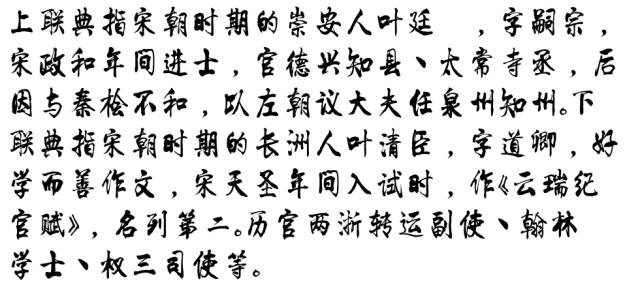 上联典指宋朝时期的崇安人叶廷 ，字嗣宗，
宋政和年间进士，官德兴知县、太常寺丞，后
因与秦桧不和，以左朝议大夫任泉州知州。下
联典指宋朝时期的长洲人叶清臣，字道卿，好
学而善作文，宋天圣年间入试时，作《云瑞纪
官赋》，名列第二。历官两浙转运副使、翰林
学士、权三司使等。